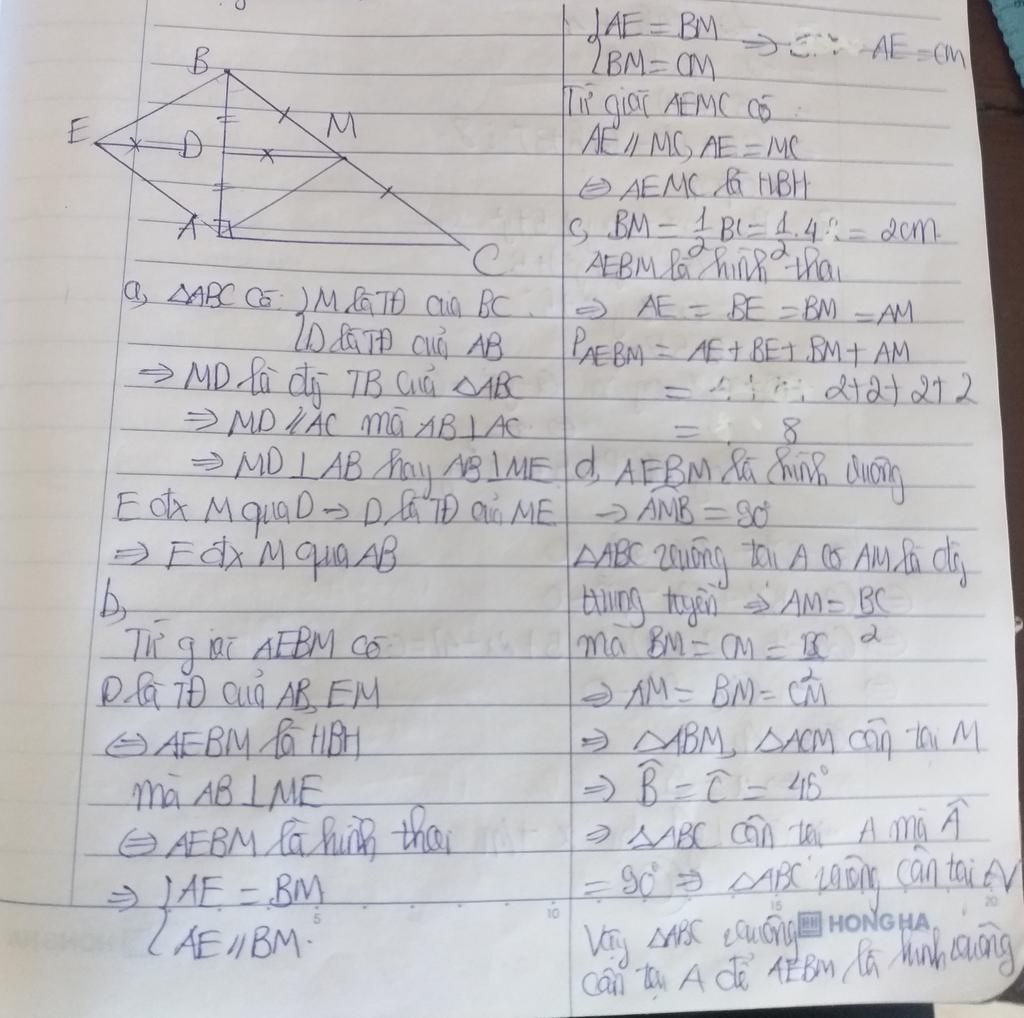 B
E
D
M
A
C
a, △ABC có: { M là TĐ của BC
{ D là TĐ củả AB
⇒ MD là đg TB của △ABC
⇒ MD // AC mà AB ⊥ AC
⇒ MD ⊥ AB hay AB ⊥ ME
E đx M qua D → D là TĐ của ME
⇒ E đx M qua AB
b,
Tứ giác AEBM có
D là TĐ củả AB, EM
⇔ AEBM là HBH
mà AB ⊥ ME
⇔ AEBM là hình thoi
⇒ { AE = BM
{ AE // BM.
{ AE = BM
{ BM = CM ⇒ AE = CM
Tứ giác AEMC có
AE // MC, AE = MC
⇔ AEMC là HBH
c, BM = 1/2 BC = 1/2 . 4 = 2cm
AEBM là hình thoi
⇒ AE = BE = BM = AM
P AEBM = AE + BE + BM + AM
= 2+2+2+2
= 8
d, AEBM là hình vuông
→ AMB = 90°
△ABC vuông tại A có AM là đg
trung tuyến ⇒ AM = BC/2
mà BM = CM = BC/2
⇒ AM = BM = CM
⇒ △ABM, △ACM cân tại M
⇒ B̂ = Ĉ = 45°
⇒ △ABC cân tại A mà Â
= 90° ⇒ △ABC vuông cân tại A
Vậy △ABC vuông
cân tại A để AEBM là hình vuông
5 10 15 20
HONG HA